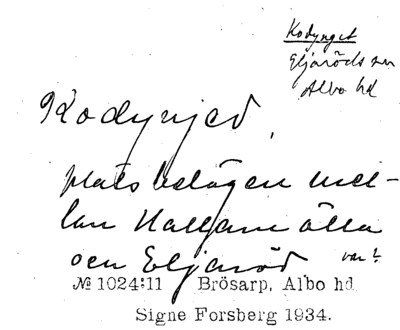 Kodynget
Eljaröds sn
Albo hd
Kodynjed,
plats belägen mel-
lan Hallamölla
och Eljaröd var?
№ 1024:11 Brösarp, Albo hd
Signe Forsberg 1934.